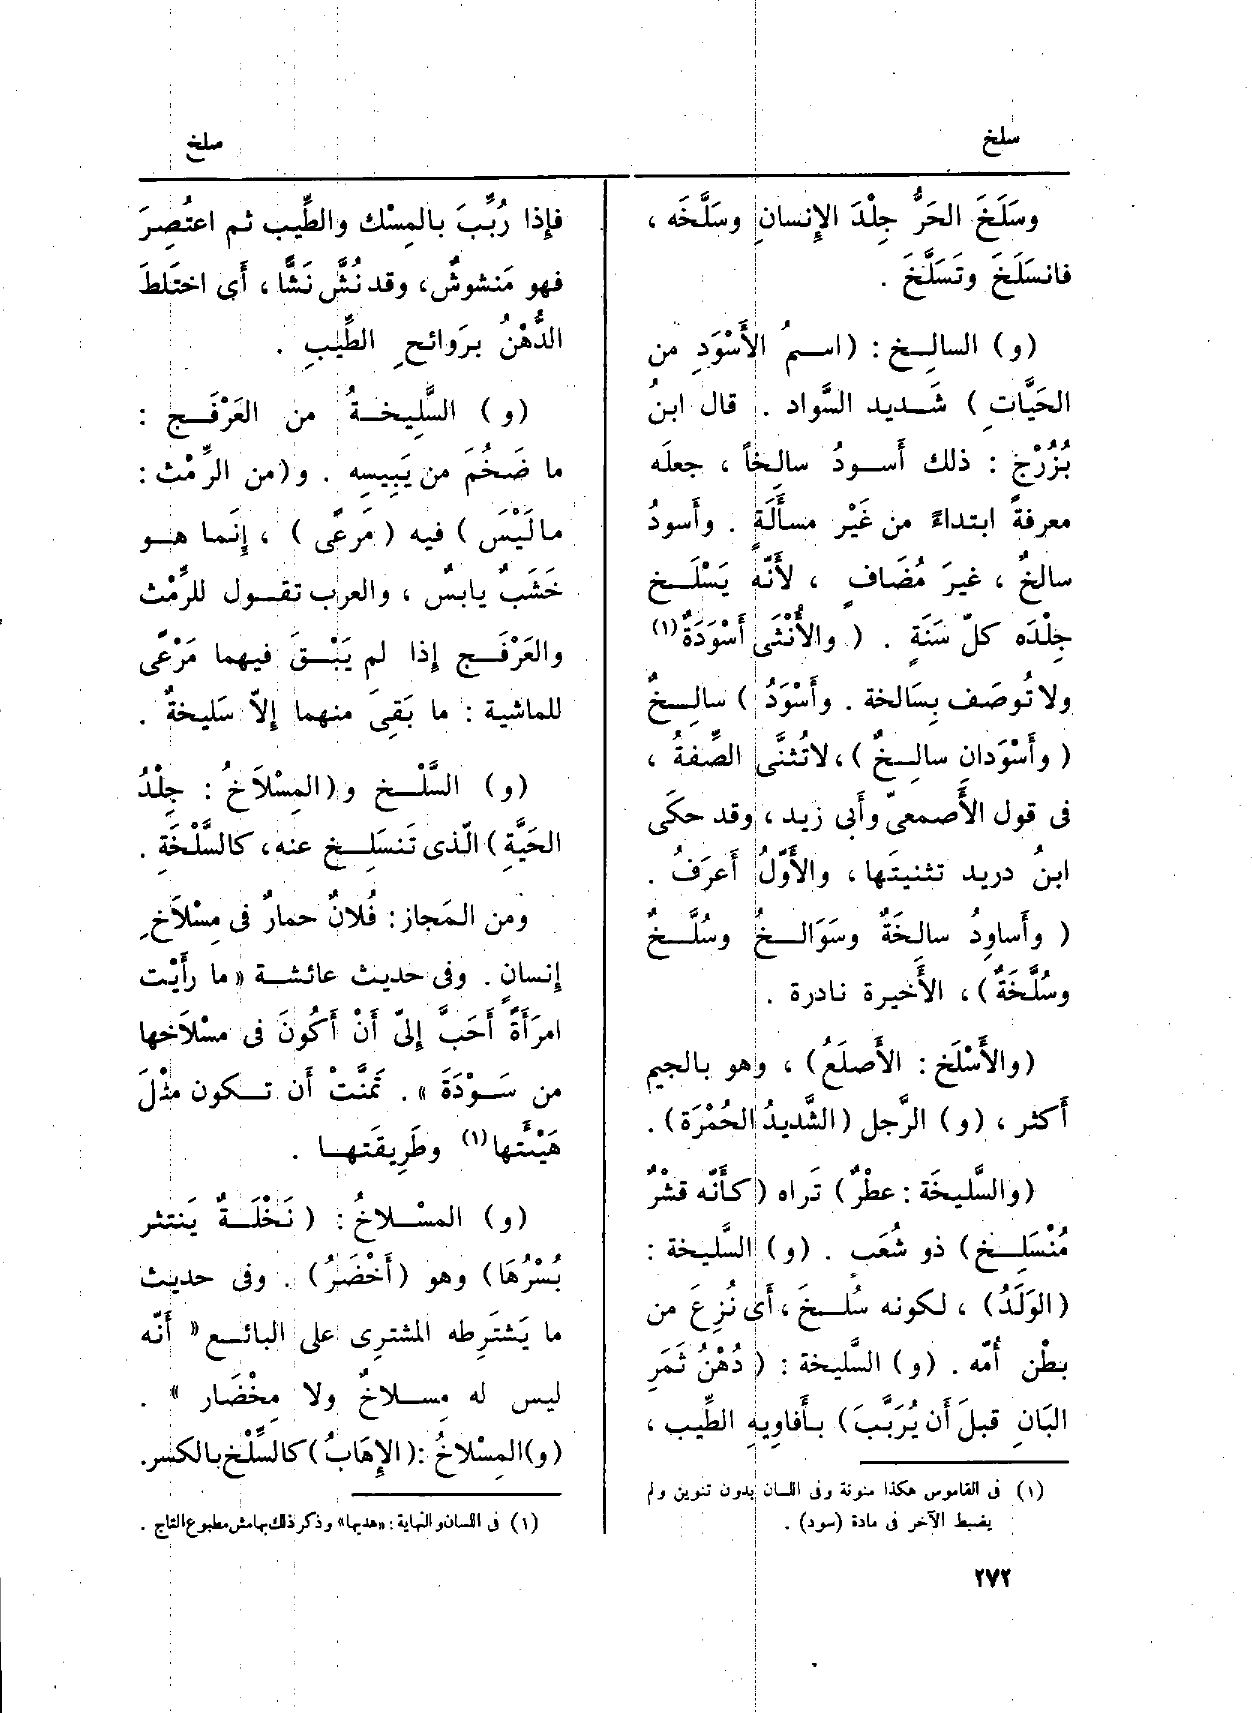 سلخ
سلخ
وسَلَخَ الحَرُّ جِلْدَ الإنسانِ وسَلَّخَه ،
فانسَلَخَ وتَسَلَّخَ .
(و) السالِخ : (اسمُ الأَسْوَدِ من
الحَيَّاتِ) شَديد السَّواد . قال ابنُ
بُزُرْج : ذلك أَسودُ سالِخاً ، جعلَه
معرفةً ابتداءً من غَيْر مسأَلَةٍ . وأَسودُ
سالخٌ ، غيرَ مُضَافٍ ، لأَنّه يَسْلَخ
جِلْدَه كلّ سَنَةٍ . (والأُنْثَى أَسْوَدَةٌ (١)
ولا تُوصَف بِسَالخة . وأَسْوَدُ) سالِخٌ
(وأَسْوَدانِ سالِخٌ)، لاتُثنَّى الصِّفةُ ،
فى قول الأَصمعىّ وأَبى زيد ، وقد حكَى
ابنُ دريد تثنيتَها ، والأَوّلُ أَعرَفُ .
(وأَساوِدُ سالِخَةٌ وسَوَالخُ وسُلَّخٌ
وسُلَّخَةٌ)، الأَخيرة نادرة .
(والأَسْلَخ : الأَصلَعُ) ، وهو بالجيم
أَكثر ، (و) الرَّجل (الشَّديدُ الحُمْرَة) .
(والسَّليخَة : عطْرٌ) تَراه (كأَنّه قشْرٌ
مُنْسَلِخ) ذو شُعَبٍ . (و) السَّليخة :
(الوَلَدُ) ، لكونه سُلِخَ ، أَى نُزِعَ من
بطْن أُمّه . (و) السَّليخة : (دُهْنُ ثَمَرِ
البَانِ قبلَ أَن يُرَبَّبَ) بأَفاوِيهِ الطِّيب ،
(١) فى القاموس هكذا منونة وفى اللسان بدون تنوين ولم
يضبط الآخر فى مادة (سود) .
٢٧٢
فإِذا رُبِّبَ بالمِسْك والطِّيب ثم اعتُصِرَ
فهو مَنشوشٌ، وقد نُشَّ نَشًّا ، أَى اختَلطَ
الدُّهْنُ بروَائحِ الطِّيبِ .
(و) السَّلِيخةُ من العَرْفَج :
ما ضَخُمَ من يَبِيسِه . و(من الرِّمْث :
ما لَيْسَ) فيه (مَرعًى) ، إِنَّما هو
خَشَبٌ يابسٌ ، والعرب تقول للرِّمْث
والعَرْفَج إِذا لم يَبْقَ فيهما مَرْعًى
للماشية : ما بَقىَ منهما إِلاّ سَليخةٌ .
(و) السَّلْخ و(المِسْلاَخُ : جِلْدُ
الحَيَّةِ) الّذى تَنسَلِخ عنه، كالسَّلْخَةِ .
ومن المَجاز : فُلانٌ حمارٌ فى مِسْلاَخِ
إِنسانٍ . وفى حديث عائشة « ما رأَيْت
امرَأَةً أَحَبَّ إِلىّ أَنْ أَكُونَ فى مسْلاَخها
من سَوْدَةَ » . تَمنَّتْ أَن تكون مثْلَ
هَيْئَتها (١) وطَرِيقَتها .
(و) المسْلاخُ : (نَخْلَةٌ يَنتثر
بُسْرُهَا) وهو (أَخْضَرُ) . وفى حديث
ما يَشتَرِطه المشترِى على البائع « أَنّه
ليس له مِسلاخٌ ولا مِخْضَار » .
(و) المِسْلاخُ : (الإِهَابُ) كالسِّلْخ بالكسر.
(١) فى اللسان والنهاية : «هديها» وذكر ذلك بهامش مطبوع التاج .